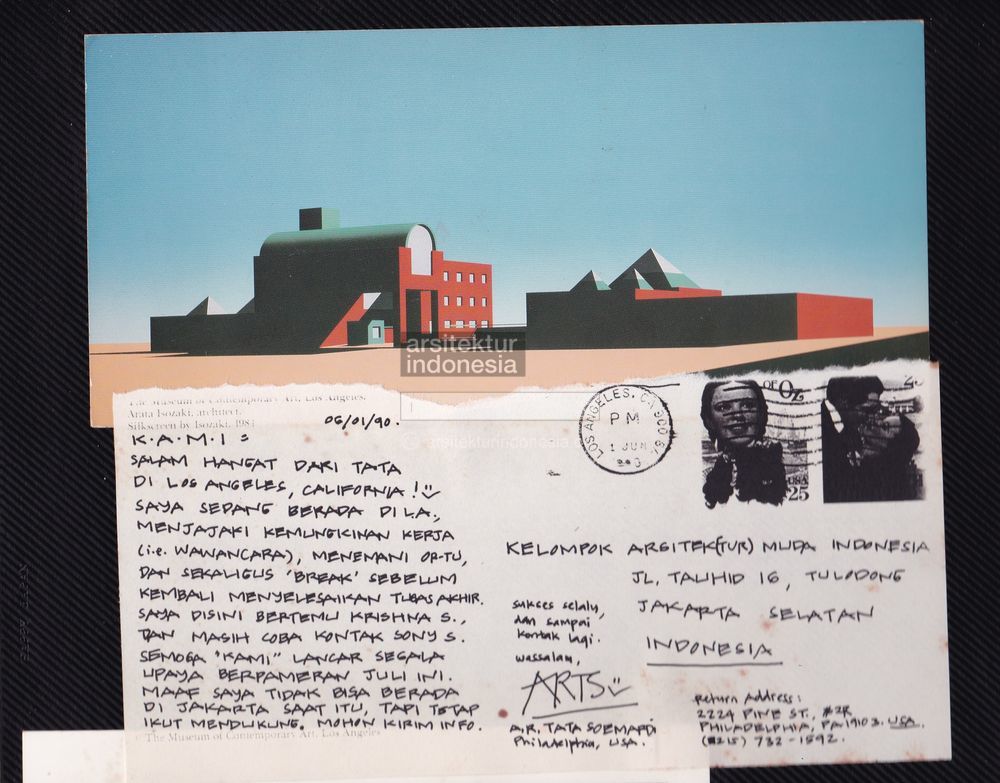 arsitektur
indonesia
The Museum of Contemporary Art, Los Angeles.
Arata Isozaki, architect.
Silkscreen by Isozaki, 1983
06/01/90.
© arsitekturindonesia
K·A·M·I :
SALAM HANGAT DARI TATA
DI LOS ANGELES, CALIFORNIA !
SAYA SEDANG BERADA DI LA.,
MENJAJAKI KEMUNGKINAN KERJA
(i.e. WAWANCARA), MENEMANI OR-TU,
DAN SEKALIGUS 'BREAK' SEBELUM
KEMBALI MENYELESAIKAN TUGAS AKHIR.
SAYA DISINI BERTEMU KRISHNA S.,
DAN MASIH COBA KONTAK SONY S.
SEMOGA "KAMI" LANCAR SEGALA
UPAYA BERPAMERAN JULI INI.
MAAF SAYA TIDAK BISA BERADA
DI JAKARTA SAAT ITU, TAPI TETAP
IKUT MENDUKUNG. MOHON KIRIM INFO.
© The Museum of Contemporary Art, Los Angeles
LOS ANGELES, CA 900
PM
1 JUN
OF OZ
USA
25
KELOMPOK ARSITEK(TUR) MUDA INDONESIA
JL. TAUHID 16, TULODONG
JAKARTA SELATAN
INDONESIA
sukses selalu,
dan sampai
kontak lagi.
wassalam,
ARTS
A.R. TATA SOEMARDI
Philadelphia, USA.
return address:
2224 PINE ST., #2R
PHILADELPHIA, PA 19103. USA.
(215) 732-1592.